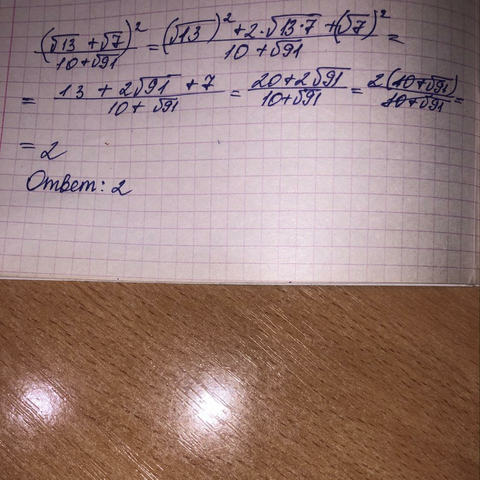 (√13 + √7)² / (10 + √91) = ((√13)² + 2·√13·7 + (√7)²) / (10 + √91) =
= (13 + 2√91 + 7) / (10 + √91) = (20 + 2√91) / (10 + √91) = 2(10 + √91) / (10 + √91) =
= 2
Ответ: 2